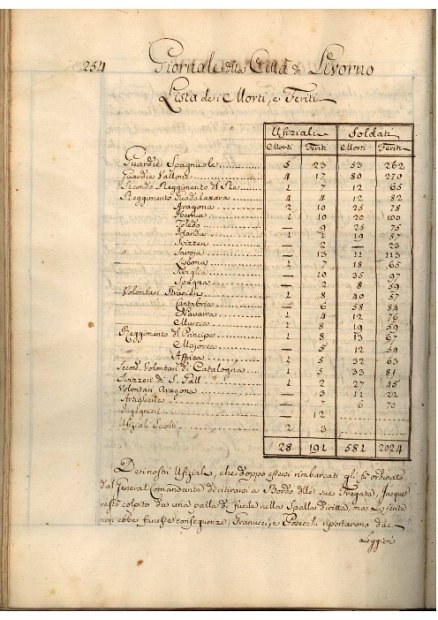 254 Giornale della Città di Livorno
Lista dei Morti, e Feriti
Ufiziali Soldati
Morti Feriti Morti Feriti
Guardie Spagnuole 5 23 53 262
Guardie Vallone 4 17 80 270
Secondo Reggimento del Re 1 7 12 65
Reggimento Guadalaxara 4 4 12 82
Aragona 2 10 25 78
Ibernia 1 10 20 100
Toledo — 9 25 75
Irlanda — 2 19 57
Svizzeri — — — 23
Savoja — 13 11 113
Lisbona 1 7 18 65
Siviglia — 10 35 97
Spagna — 2 8 59
Volontari Stranieri 1 8 40 57
Cantabria — 6 58 84
Navarra 1 4 12 76
Murcia 1 8 19 59
Reggimento del Principe 1 8 13 67
Majorca — 5 12 54
Affrica 1 5 32 63
Second. Volontari di Catalogna 1 5 33 81
Svizzeri di S. Gall 1 2 27 45
Volontari Aragona — 3 11 22
Artiglieria — 6 70
Ingegneri — 12
Ufiziali Sciolti 2 3
28 191 581 2024
Dei nostri Ufiziali, che doppo essersi rimbarcati gl. fù ordinato
dal General Comandante di ritirarsi a Bordo delle sue Fregate, Jacquet
restò colpito da una palla di fucile nella Spalla diritta, ma la ferita
non ebbe funeste conseguenze, e riportarono due
leggieri